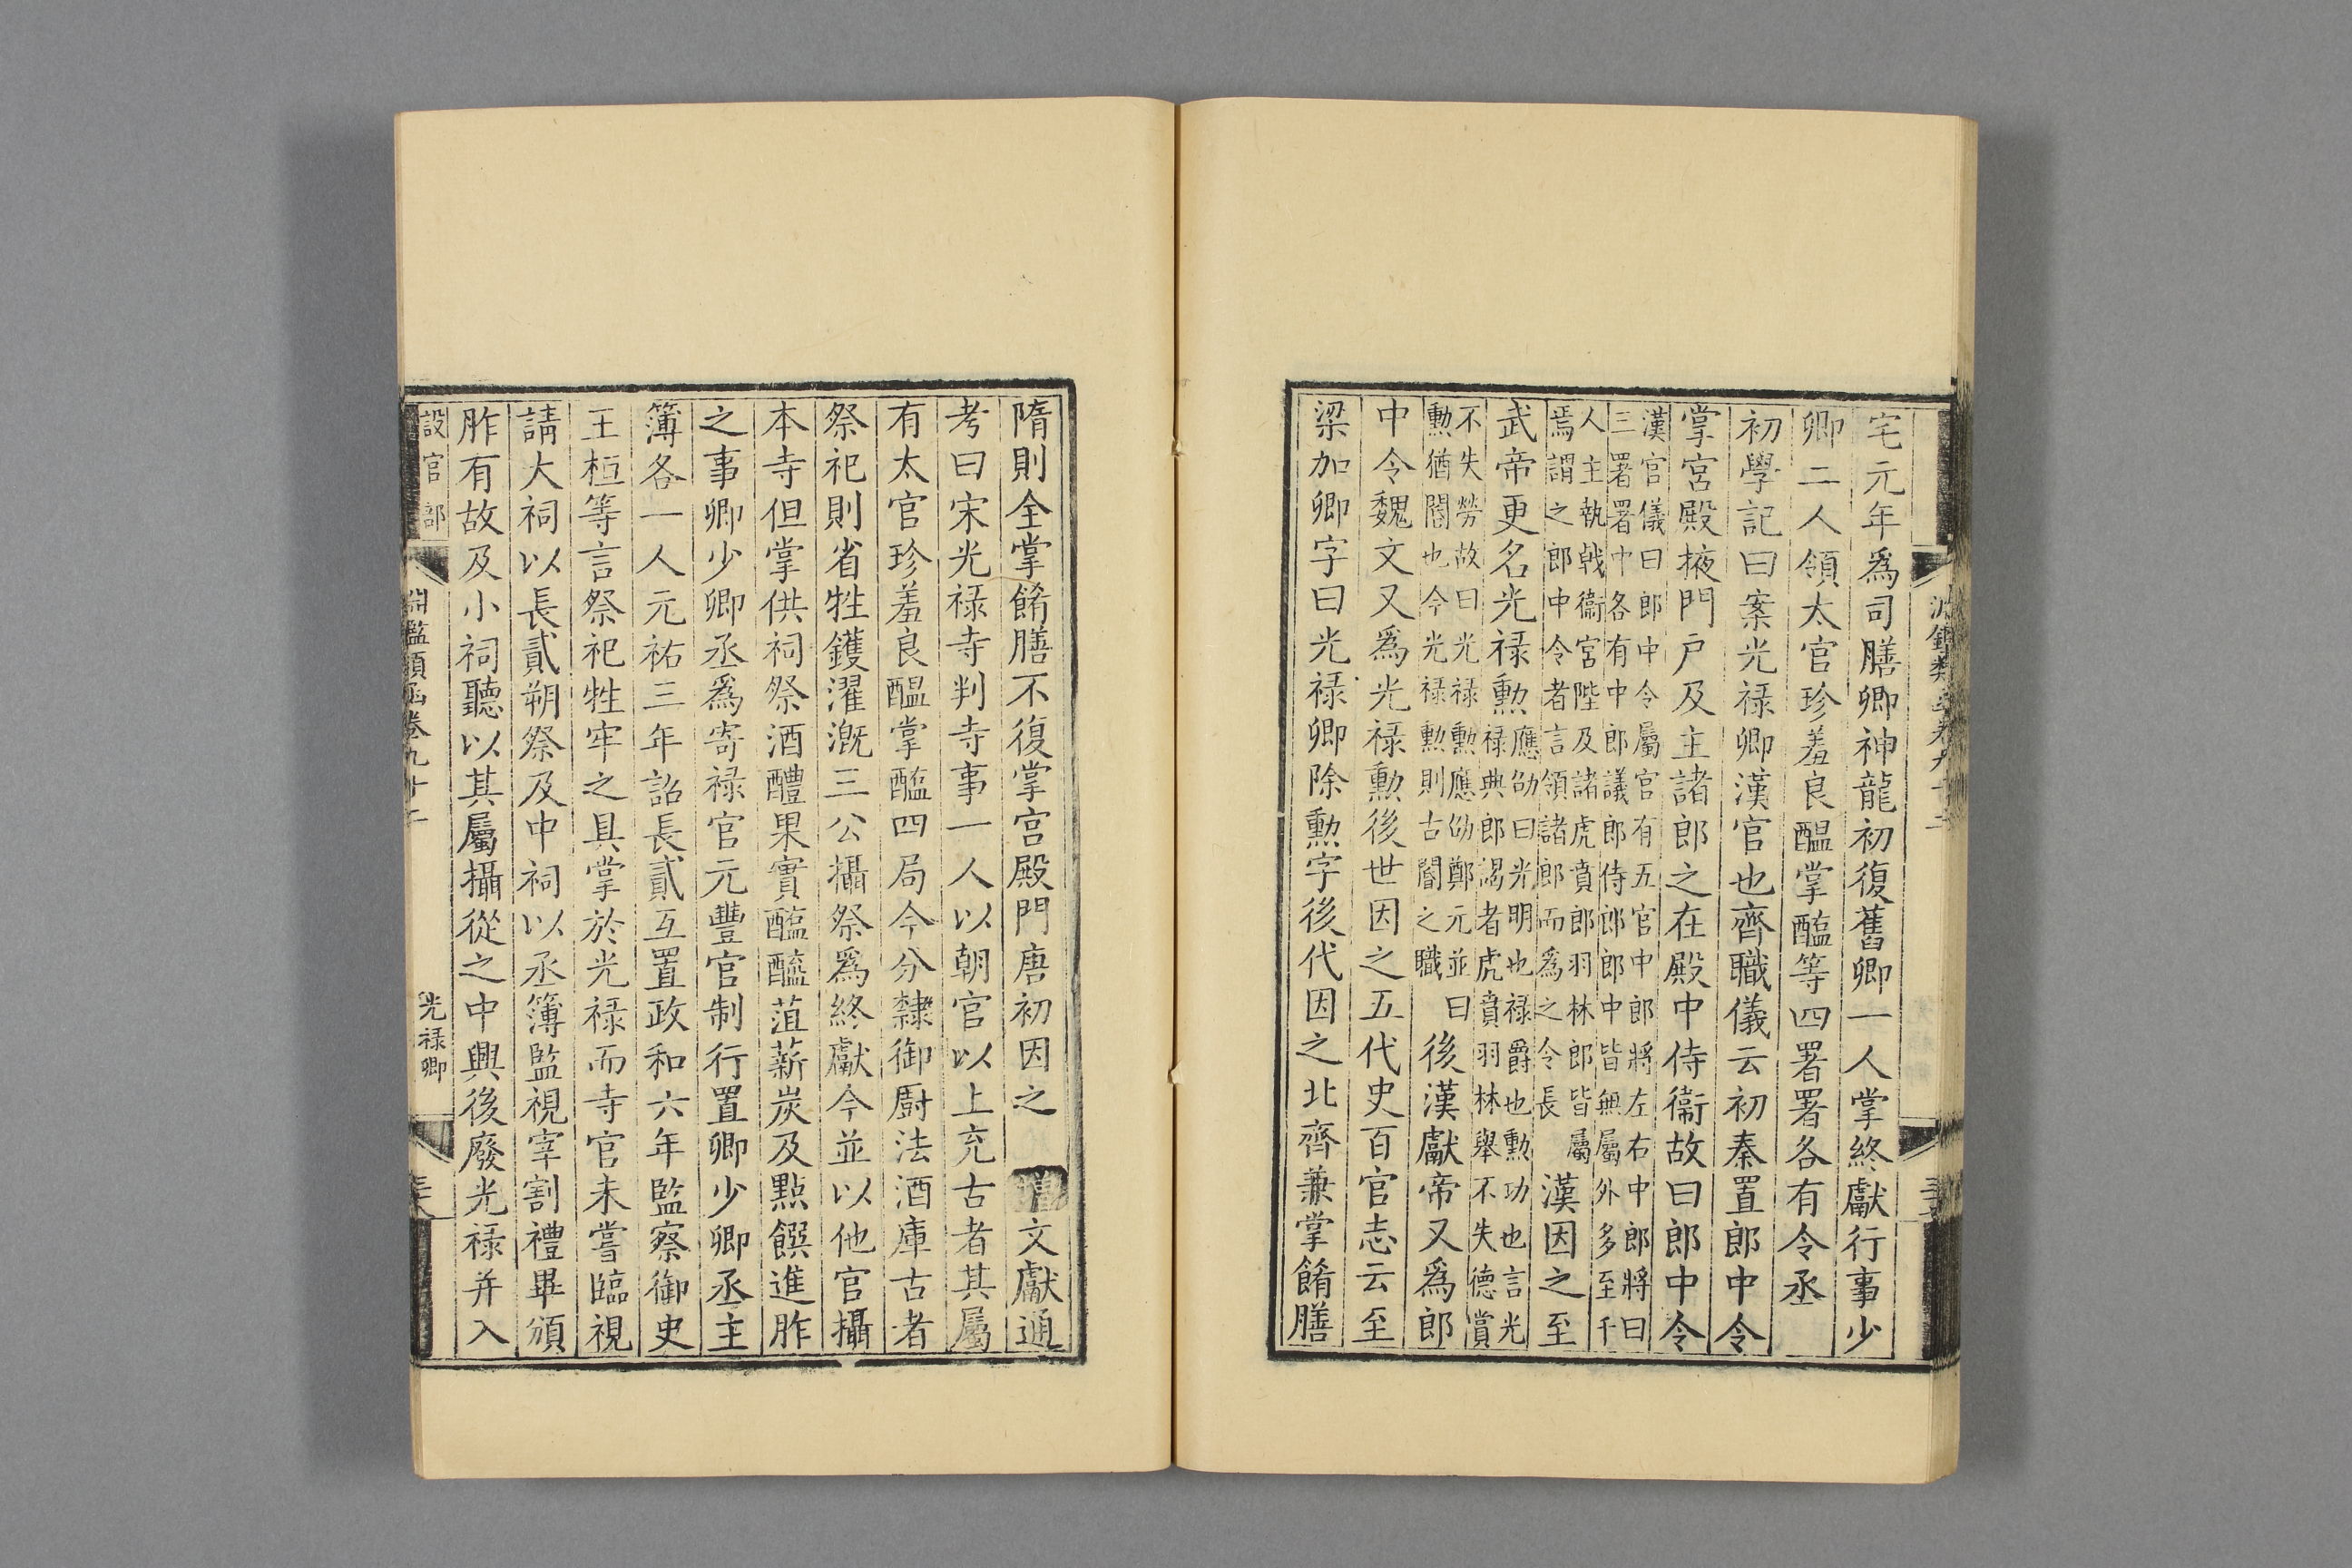 宅元年爲司膳卿神龍初復舊卿一人掌終獻行事少
卿二人領太官珍羞良醞掌醢等四署署各有令丞
初學記曰案光祿卿漢官也齊職儀云初秦置郎中令
掌宮殿掖門戶及主諸郎之在殿中侍衞故曰郎中令
漢官儀曰郎中令屬官有五官中郎將左右中郎將曰
三署署中各有中郎議郎侍郎郎中皆無屬外多至千
人主執戟衞宮陛及諸虎賁郎羽林郎皆屬
焉謂之郎中令者言領諸郎而爲之令長
漢因之至
武帝更名光祿勳
應劭曰光明也祿爵也勳功也言光
祿典郎謁者虎賁羽林舉不失德賞
不失勞故曰光祿勳應劭鄭元並曰
勳猶閽也今光祿勳則古閽之職
後漢獻帝又爲郎
中令魏文又爲光祿勳後世因之五代史百官志云至
梁加卿字曰光祿卿除勳字後代因之北齊兼掌餚膳
隋則全掌餚膳不復掌宮殿門唐初因之
文獻通
考曰宋光祿寺判寺事一人以朝官以上充古者其屬
有太官珍羞良醞掌醢四局今分隸御廚法酒庫古者
祭祀則省牲鑊濯漑三公攝祭爲終獻今並以他官攝
本寺但掌供祠祭酒醴果實醢醯菹薪炭及點饌進胙
之事卿少卿丞爲寄祿官元豐官制行置卿少卿丞主
簿各一人元祐三年詔長貳互置政和六年監察御史
王桓等言祭祀牲牢之具掌於光祿而寺官未嘗臨視
請大祠以長貳朔祭及中祠以丞簿監視宰割禮畢頒
胙有故及小祠聽以其屬攝從之中興後廢光祿幷入
設官部
淵鑑類函卷九十二
光祿卿